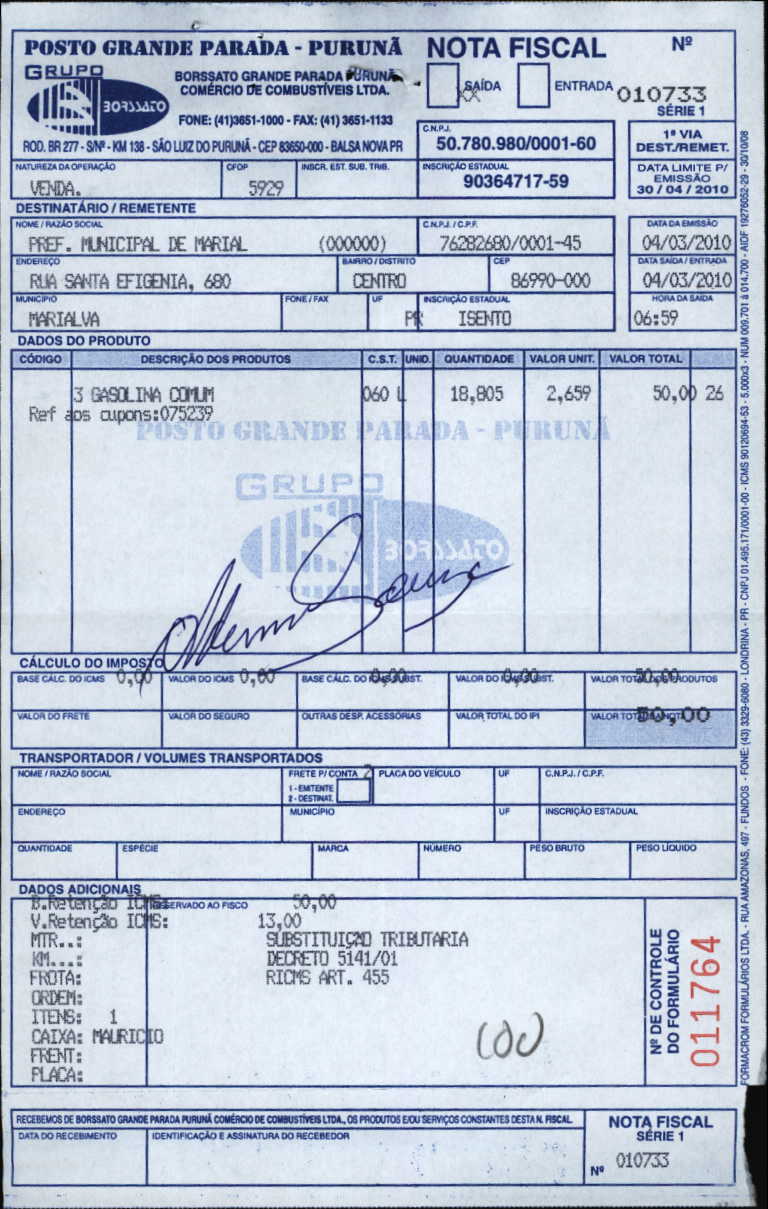 POSTO GRANDE PARADA - PURUNÃ
NOTA FISCAL
Nº
GRUPO
BORSSATO
BORSSATO GRANDE PARADA PURUNÃ
COMÉRCIO DE COMBUSTÍVEIS LTDA.
FONE: (41)3651-1000 - FAX: (41) 3651-1133
ROD. BR 277 - S/Nº - KM 138 - SÃO LUIZ DO PURUNÃ - CEP 83650-000 - BALSA NOVA PR
XX SAÍDA
ENTRADA
010733
SÉRIE 1
C.N.P.J.
50.780.980/0001-60
1ª VIA
DEST./REMET.
NATUREZA DA OPERAÇÃO
VENDA.
CFOP
5929
INSCR. EST. SUB. TRIB.
INSCRIÇÃO ESTADUAL
90364717-59
DATA LIMITE P/
EMISSÃO
30 / 04 / 2010
DESTINATÁRIO / REMETENTE
NOME / RAZÃO SOCIAL
PREF. MUNICIPAL DE MARIAL (000000)
C.N.P.J. / C.P.F.
76282680/0001-45
DATA DA EMISSÃO
04/03/2010
ENDEREÇO
RUA SANTA EFIGENIA, 680
BAIRRO / DISTRITO
CENTRO
CEP
86990-000
DATA SAÍDA / ENTRADA
04/03/2010
MUNICÍPIO
MARIALVA
FONE / FAX
UF
PR
INSCRIÇÃO ESTADUAL
ISENTO
HORA DA SAÍDA
06:59
DADOS DO PRODUTO
CÓDIGO DESCRIÇÃO DOS PRODUTOS C.S.T. UNID. QUANTIDADE VALOR UNIT. VALOR TOTAL
3 GASOLINA COMUM 060 L 18,805 2,659 50,00 26
Ref aos cupons:075239
POSTO GRANDE PARADA - PURUNÃ
GRUPO
BORSSATO
CÁLCULO DO IMPOSTO
BASE CÁLC. DO ICMS 0,00
VALOR DO ICMS 0,00
BASE CÁLC. DO ICMS SUBST. 0,00
VALOR DO ICMS SUBST. 0,00
VALOR TOTAL DOS PRODUTOS 50,00
VALOR DO FRETE
VALOR DO SEGURO
OUTRAS DESP. ACESSÓRIAS
VALOR TOTAL DO IPI
VALOR TOTAL DA NOTA 50,00
TRANSPORTADOR / VOLUMES TRANSPORTADOS
NOME / RAZÃO SOCIAL
FRETE P/ CONTA 2
1 - EMITENTE
2 - DESTINAT.
PLACA DO VEÍCULO
UF
C.N.P.J. / C.P.F.
ENDEREÇO
MUNICÍPIO
UF
INSCRIÇÃO ESTADUAL
QUANTIDADE
ESPÉCIE
MARCA
NÚMERO
PESO BRUTO
PESO LÍQUIDO
DADOS ADICIONAIS
RESERVADO AO FISCO
B.Retenção ICMS: 50,00
V.Retenção ICMS: 13,00
MTR..: SUBSTITUIÇÃO TRIBUTARIA
KM...: DECRETO 5141/01
FROTA: RICMS ART. 455
ORDEM:
ITENS: 1
CAIXA: MAURICIO
FRENT:
PLACA:
Nº DE CONTROLE
DO FORMULÁRIO
011764
RECEBEMOS DE BORSSATO GRANDE PARADA PURUNÃ COMÉRCIO DE COMBUSTÍVEIS LTDA., OS PRODUTOS E/OU SERVIÇOS CONSTANTES DESTA N. FISCAL
DATA DO RECEBIMENTO
IDENTIFICAÇÃO E ASSINATURA DO RECEBEDOR
NOTA FISCAL
SÉRIE 1
Nº 010733
FORMACROM FORMULÁRIOS LTDA. - RUA AMAZONAS, 497 - FUNDOS - FONE: (43) 3329-6080 - LONDRINA - PR - CNPJ 01.495.171/0001-00 - ICMS 90120694-53 - 5.000x3 - NUM 009.701 à 014.700 - AIDF 19276052-29 - 30/10/08